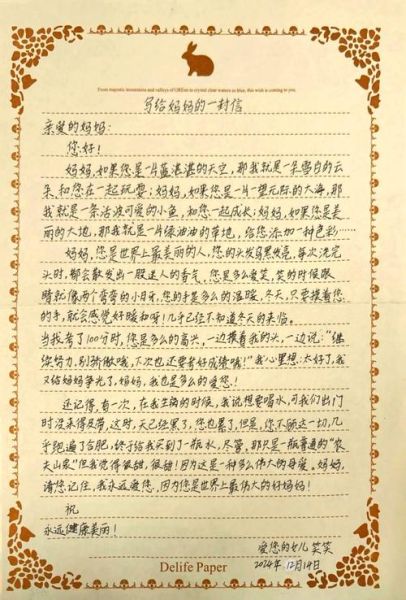 From magnetic mountains and valleys of
to crystal clear waters so blue, this wish is coming to you.
写给妈妈的一封信
亲爱的妈妈:
您好!
妈妈,如果您是一片蓝湛湛的天空,那我就是一朵雪白的云
朵,和您在一起玩耍;妈妈,如果您是一片一望无际的大海,那
我就是一条活波可爱的小鱼,和您一起成长;妈妈,如果您是美
丽的大地,那我就是一片绿油油的草地,给您添加一种色彩……
妈妈,您是世界上最美丽的人,您的头发乌黑发亮,每次洗完
头时,都会散发出一股迷人的香气,您是多么爱笑,笑的时候眼
睛就像两个弯弯的小月牙,您的手是多么的温暖,冬天,只要摸着您
的手,就会感觉好暖和呀!几乎已经不知道冬天的来临。
当我考了100分时,您是多么的高兴,一边摸着我的头,一边说:“继
续努力,别骄傲哦,下次也还要考好成绩哦!”我心里想:太好了,我
又给妈妈争光了,妈妈,我也是多么的爱您!
还记得,有一次,在我生病的时候,我说想要喝水,可我们出门
时没来得及带,这时,天已经黑了,您也累了,但是,您不顾这一切,几
乎跑遍了合肥,终于给我买到了一瓶水,尽管,那只是一瓶普通的“农
夫山泉”但我觉得很甜,很甜!因为这是一种多么伟大的母爱,妈妈,
请您记住,我永远爱您,因为您是世界上最伟大的好妈妈!
祝
永远健康美丽!
爱您的女儿笑笑
2024年12月14日
Delife Paper